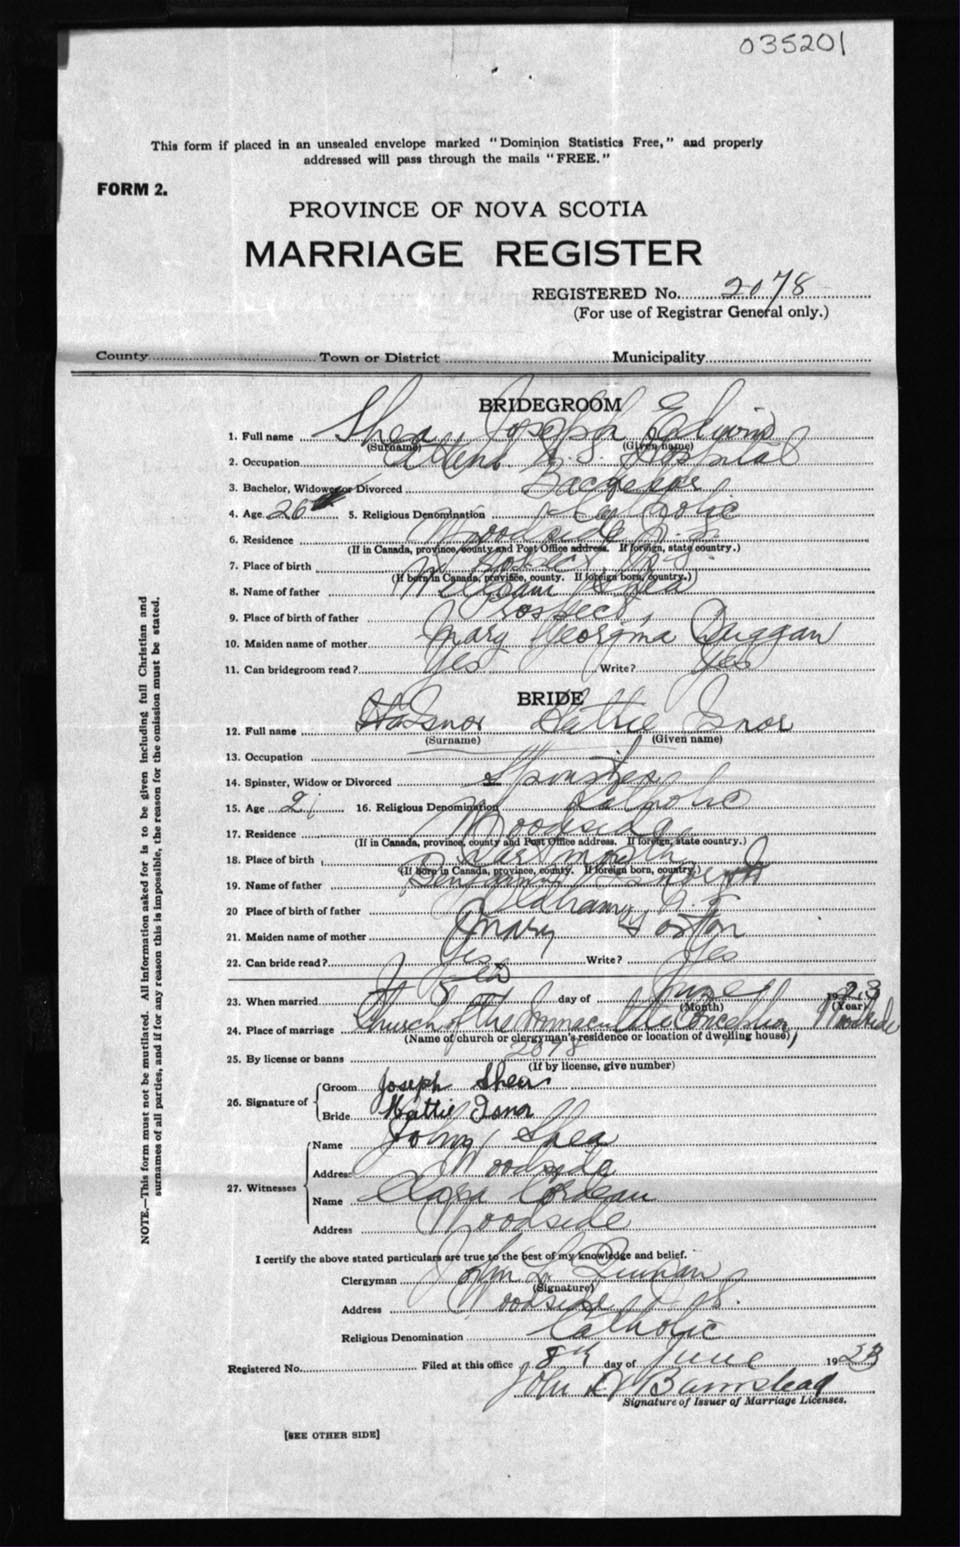 035201
This form if placed in an unsealed envelope marked "Dominion Statistics Free," and properly
addressed will pass through the mails "FREE."
FORM 2.
PROVINCE OF NOVA SCOTIA
MARRIAGE REGISTER
REGISTERED No. 2078
(For use of Registrar General only.)
County Town or District Municipality
BRIDEGROOM
1. Full name Shea Joseph Edwin
(Surname) (Given name)
2. Occupation N. S. Hospital
3. Bachelor, Widower or Divorced Bachelor
4. Age 26 5. Religious Denomination Catholic
6. Residence Woodside N. S.
(If in Canada, province, county and Post Office address. If foreign, state country.)
7. Place of birth N. S.
(If born in Canada, province, county. If foreign born, country.)
8. Name of father William Shea
9. Place of birth of father Prospect,
10. Maiden name of mother Mary Georgina Duggan
11. Can bridegroom read? Yes Write? Yes
BRIDE
12. Full name Isnor Hattie Isnor
(Surname) (Given name)
13. Occupation
14. Spinster, Widow or Divorced Spinster
15. Age 21 16. Religious Denomination Catholic
17. Residence Woodside
(If in Canada, province, county and Post Office address. If foreign, state country.)
18. Place of birth Dartmouth
(If born in Canada, province, county. If foreign born, country.)
19. Name of father Benjamin
20 Place of birth of father N. S.
21. Maiden name of mother Mary
22. Can bride read? Yes Write? Yes
23. When married 8 day of June 1923
(Month) (Year)
24. Place of marriage Church of the Immaculate Conception, Woodside
(Name of church or clergyman's residence or location of dwelling house)
25. By license or banns 2078
(If by license, give number)
26. Signature of Groom Joseph Shea
Bride Hattie Isnor
27. Witnesses Name John Shea
Address Woodside
Name Clara
Address Woodside
I certify the above stated particulars are true to the best of my knowledge and belief.
Clergyman John L. Quinan
(Signature)
Address Woodside N. S.
Religious Denomination Catholic
Registered No. Filed at this office 8th day of June 1923
John A Barnstead
Signature of Issuer of Marriage Licenses.
[SEE OTHER SIDE]
NOTE.—This form must not be mutilated. All information asked for is to be given including full Christian and
surnames of all parties, and if for any reason this is impossible, the reason for the omission must be stated.